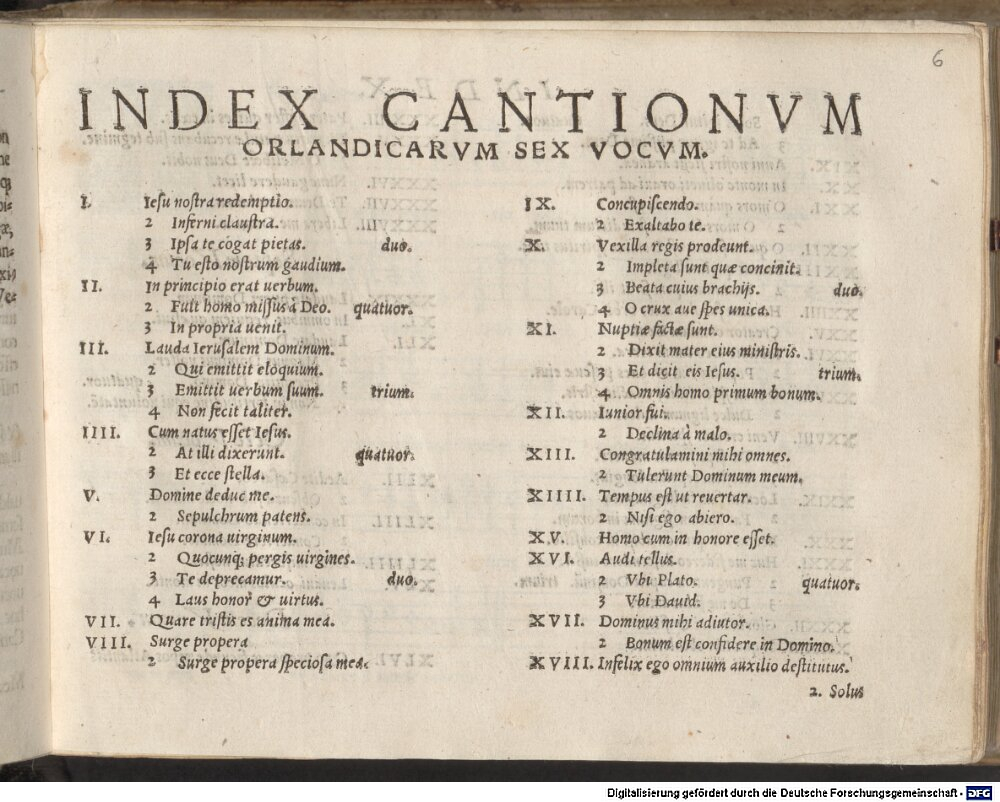 6
INDEX CANTIONVM
ORLANDICARVM SEX VOCVM.
I. Iesu nostra redemptio.
2 Inferni claustra.
3 Ipsa te cogat pietas. duo.
4 Tu esto nostrum gaudium.
II. In principio erat uerbum.
2 Fuit homo missus à Deo. quatuor.
3 In propria uenit.
III. Lauda Ierusalem Dominum.
2 Qui emittit eloquium.
3 Emittit uerbum suum. trium.
4 Non fecit taliter.
IIII. Cum natus esset Iesus.
2 At illi dixerunt. quatuor.
3 Et ecce stella.
V. Domine deduc me.
2 Sepulchrum patens.
VI. Iesu corona uirginum.
2 Quocunq; pergis uirgines.
3 Te deprecamur. duo.
4 Laus honor & uirtus.
VII. Quare tristis es anima mea.
VIII. Surge propera
2 Surge propera speciosa mea.
IX. Concupiscendo.
2 Exaltabo te.
X. Vexilla regis prodeunt.
2 Impleta sunt quæ concinit.
3 Beata cuius brachijs. duo.
4 O crux aue spes unica.
XI. Nuptiæ factæ sunt.
2 Dixit mater eius ministris.
3 Et dicit eis Iesus. trium.
4 Omnis homo primum bonum.
XII. Iunior fui.
2 Declina à malo.
XIII. Congratulamini mihi omnes.
2 Tulerunt Dominum meum.
XIIII. Tempus est ut reuertar.
2 Nisi ego abiero.
XV. Homo cum in honore esset.
XVI. Audi tellus.
2 Vbi Plato. quatuor.
3 Vbi Dauid.
XVII. Dominus mihi adiutor.
2 Bonum est confidere in Domino.
XVIII. Infelix ego omnium auxilio destitutus.
2. Solus
Digitalisierung gefördert durch die Deutsche Forschungsgemeinschaft - DFG